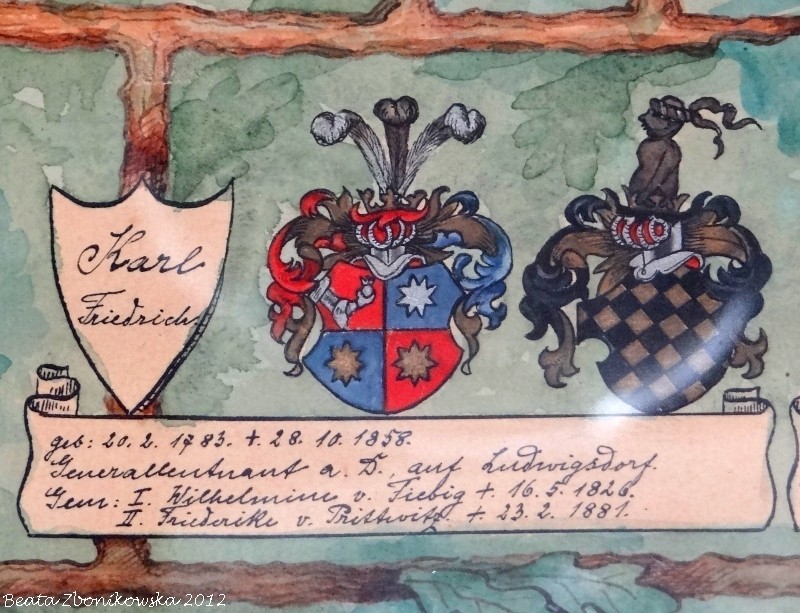 Karl
Friedrich
geb: 20. 2. 1783. + 28. 10. 1858.
Generalleutnant a. D., auf Ludwigsdorf.
Gem: I. Wilhelmine v. Fiebig + 16. 5. 1826.
II. Friederike v. Prittwitz. + 23. 2. 1881.
Beata Zbonikowska 2012